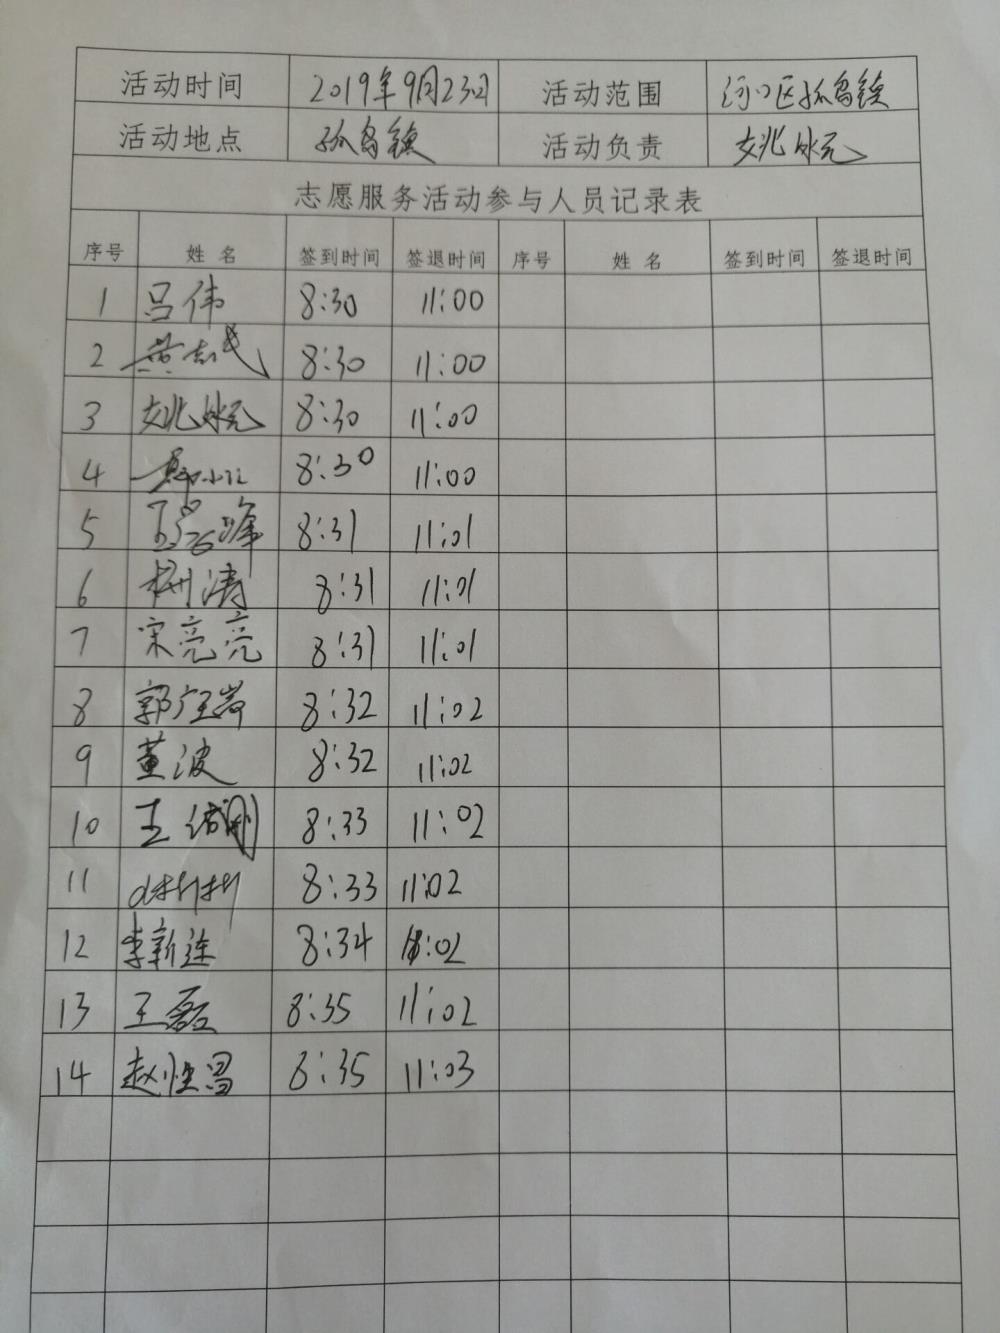 活动时间 2019年9月23日 活动范围 河口区孤岛镇
活动地点 孤岛镇 活动负责 姚永元
志愿服务活动参与人员记录表
序号 姓名 签到时间 签退时间 序号 姓名 签到时间 签退时间
1 吕伟 8:30 11:00
2 黄志民 8:30 11:00
3 姚永元 8:30 11:00
4 8:30 11:00
5 8:31 11:01
6 涛 8:31 11:01
7 宋亮亮 8:31 11:01
8 郭 8:32 11:02
9 董波 8:32 11:02
10 王 刚 8:33 11:02
11 8:33 11:02
12 李新连 8:34 11:02
13 王磊 8:35 11:02
14 赵恒昌 8:35 11:03